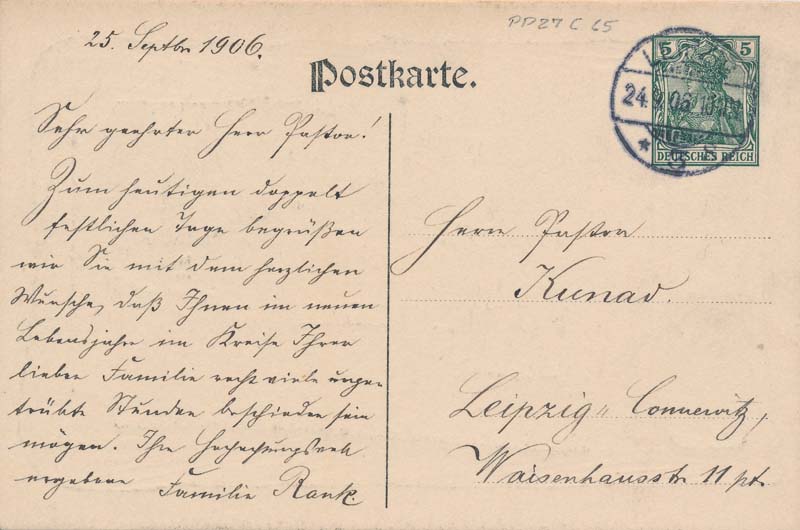 25. Septbr 1906.
PP27 C 65
Postkarte.
5 5
DEUTSCHES REICH
24.9.06
* 3 *
Sehr geehrter Herr Pastor!
Zum heutigen doppelt
festlichen Tage begrüßen
wir Sie mit dem herzlichen
Wunsche, daß Ihnen im neuen
Lebensjahre im Kreise Ihrer
lieben Familie recht viele unge-
trübte Stunden beschieden sein
mögen. Ihre hochachtungsvoll
ergebene Familie Rank.
Herrn Pastor
Kunad.
Leipzig-Connewitz,
Waisenhausstr. 11 pt.